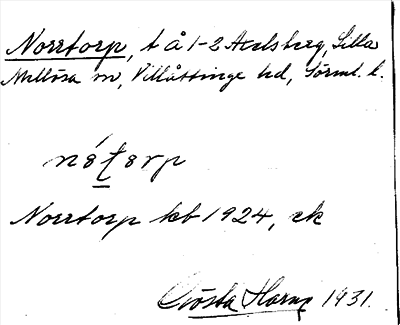 Norrtorp, t å 1-2 Axelsberg, Lilla
Mellösa sn, Villåttinge hd, Sörml. l.
nóterp
Norrtorp kb 1924, ek
Gösta Harne 1931.